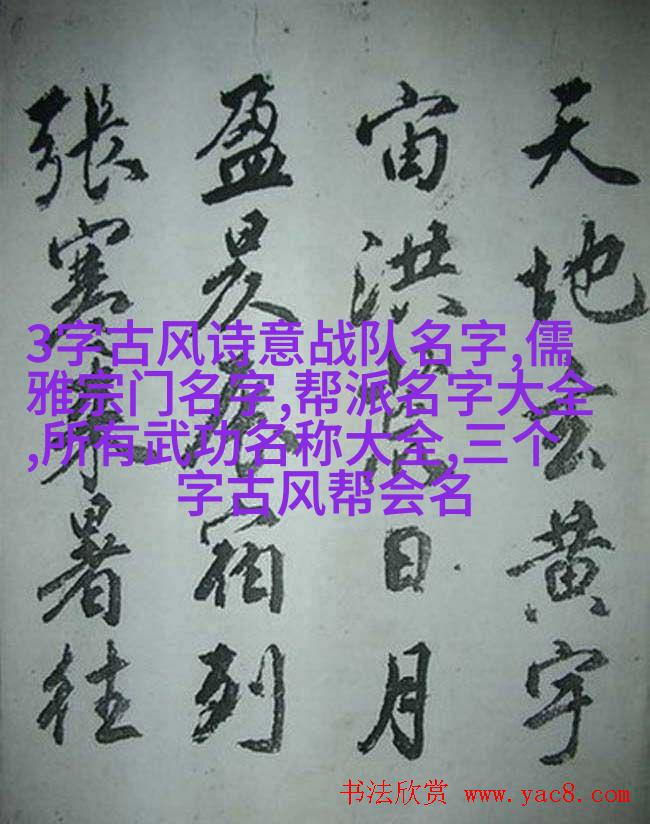 天地玄黄宇
宙洪日月
盈昃宿列
張寒暑往
3字古风诗意战队名字,儒
雅宗门名字,帮派名字大全
,所有武功名称大全,三个
字古风帮会名
书法欣赏 www.yac8.com